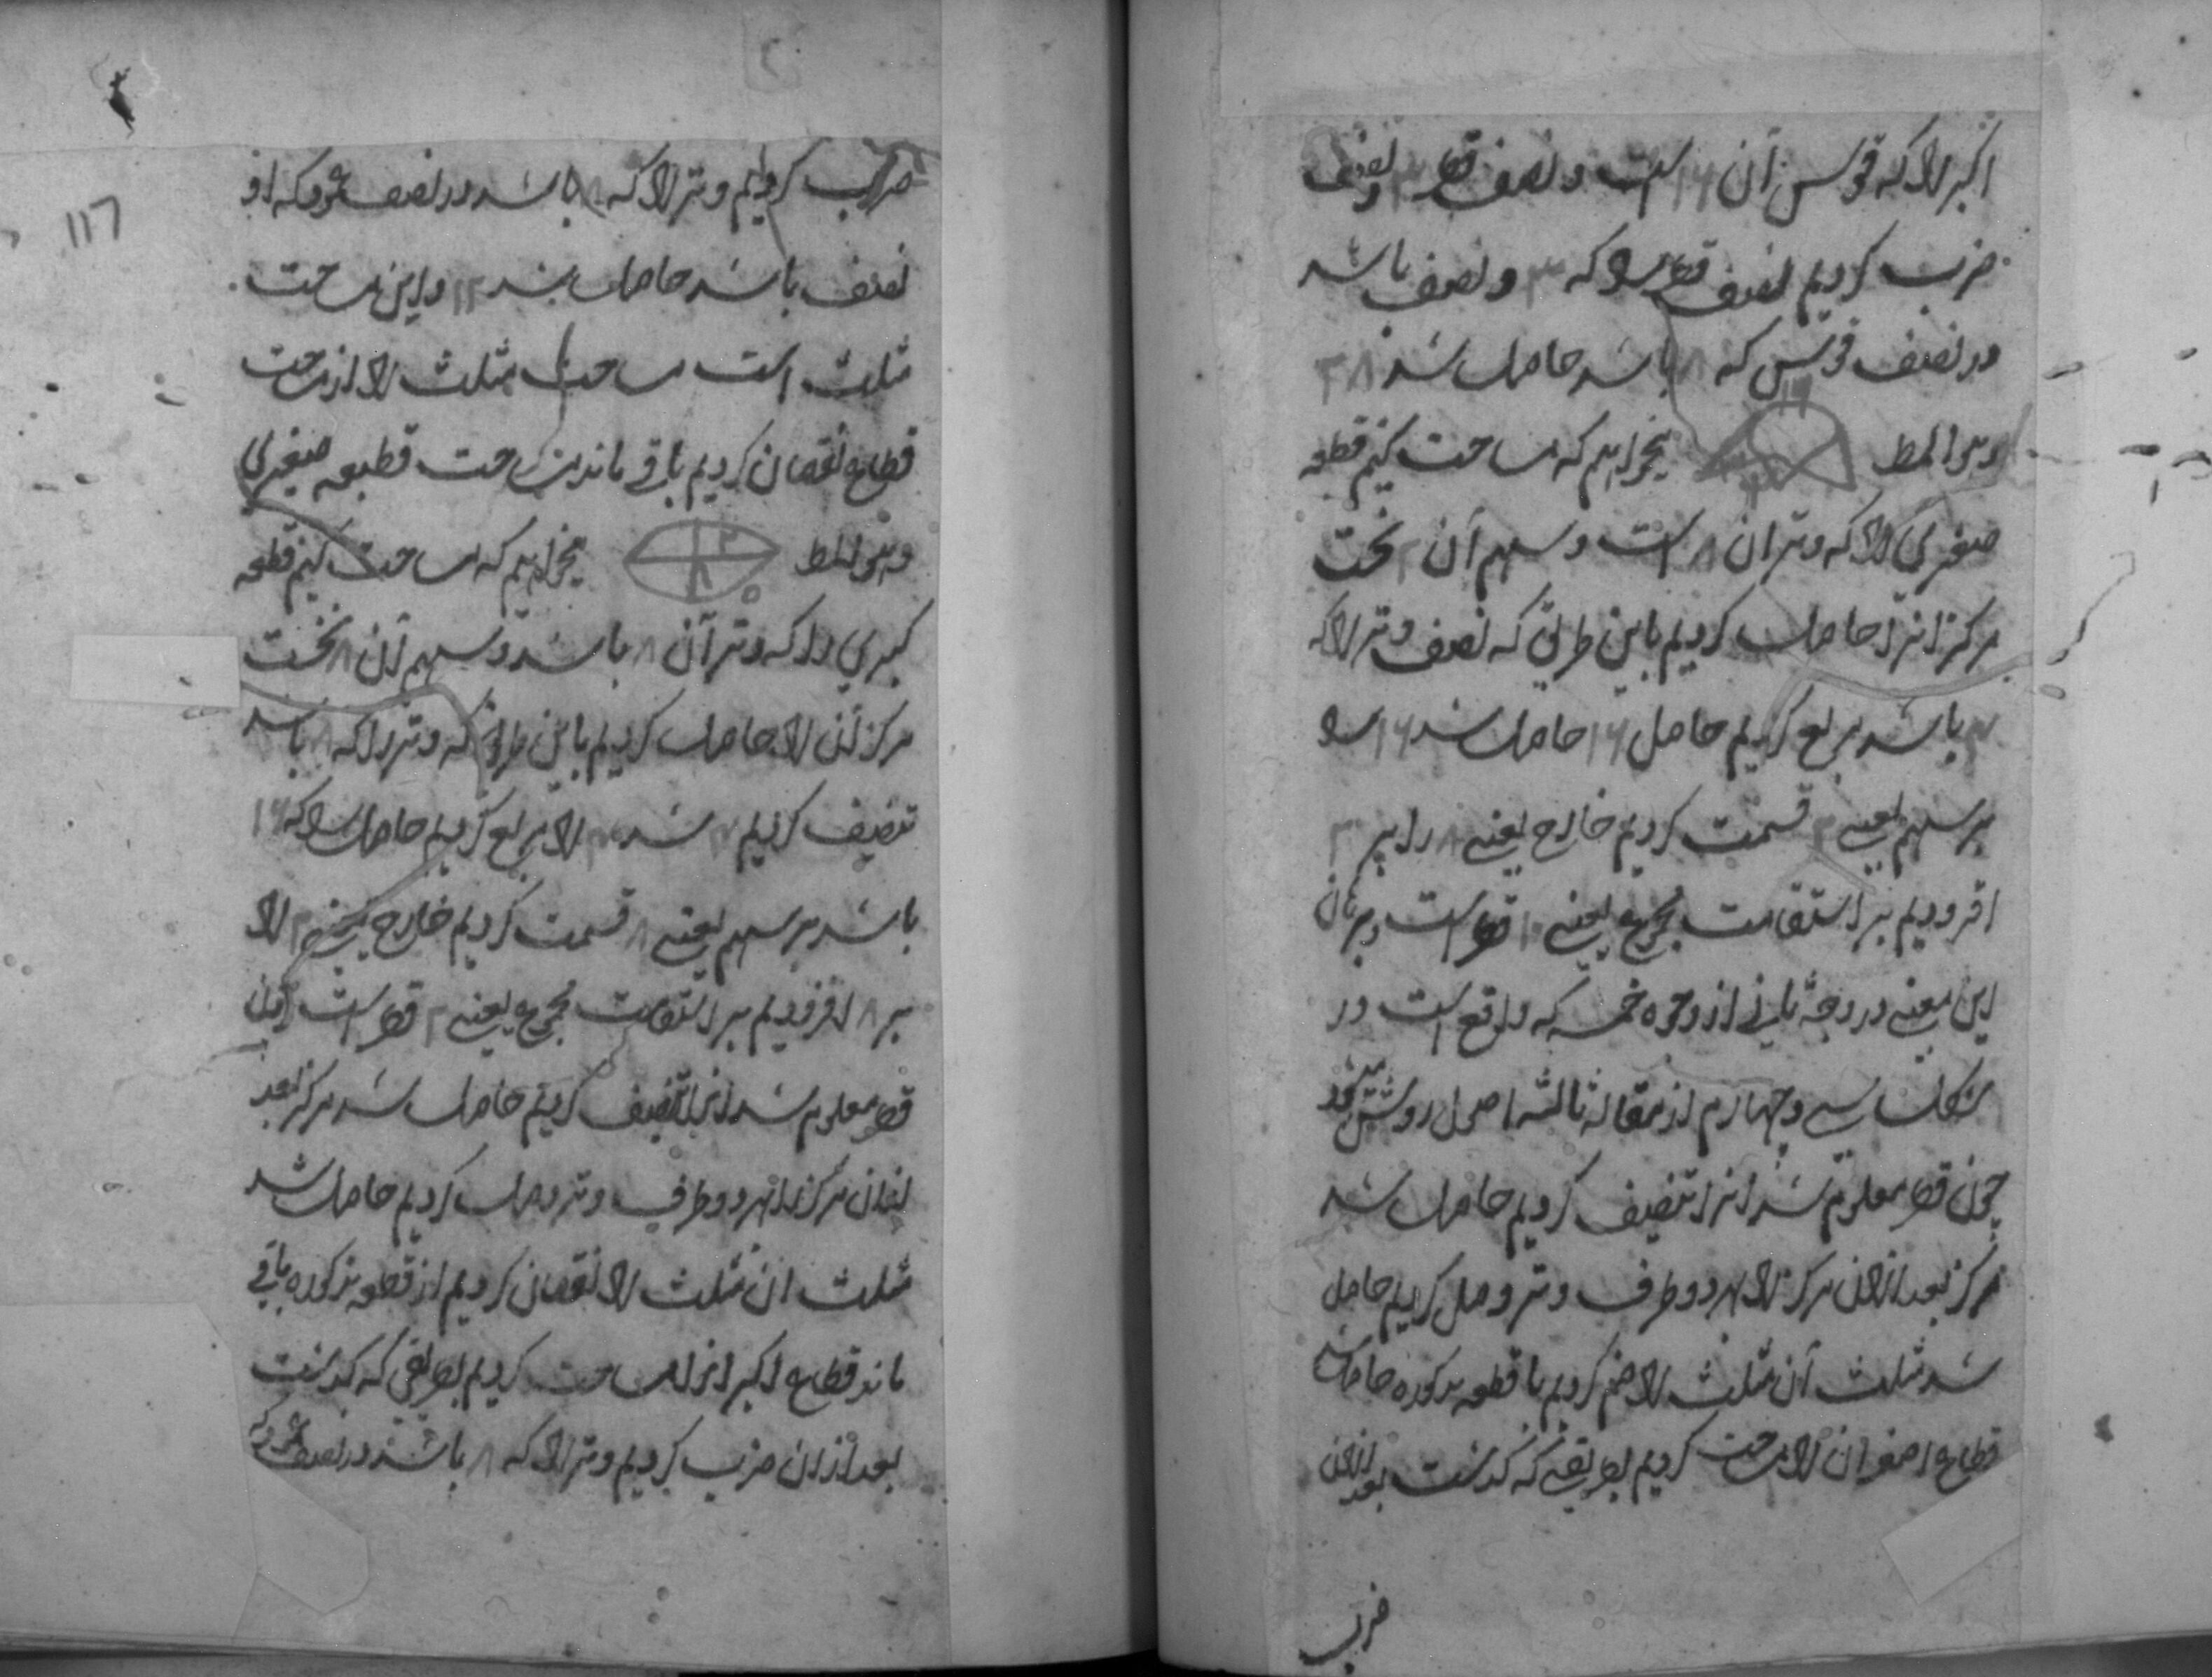 اکبر را که قوس آن ۱۶ است و نصف قطر ۳ و نصف
ضرب کردیم نصف قطر را که ۳ و نصف باشد
در نصف قوس که ۸ باشد حاصل شد ۲۸
و هو المط میخواهیم که مساحت کنیم قطعه
صغری را که وتر آن ۸ است و سهم آن ۲ نخست
مرکز آنرا حاصل کردیم باین طریق که نصف وتر را که
۴ باشد مربع کردیم حاصل ۱۶ حاصل شد ۱۶ را
بر سهم یعنی ۲ قسمت کردیم خارج یعنی ۸ را بر ۲
افزودیم بر استقامت مجموع یعنی ۱۰ قطر است و برهان
این معنی در وجه ثانی از وجوه خمسه که واقع است در
شکل سی و چهارم از مقاله ثالثه اصول روشن میشود
چون قطر معلوم شد آنرا تنصیف کردیم حاصل شد
مرکز بعد ازان مرکز را بهر دو طرف وتر وصل کردیم حاصل
شد مثلث آن مثلث را ضم کردیم با قطعه مذکوره حاصل شد
قطاع اصغر آن را مساحت کردیم بطریقی که گذشت بعد ازان
ضرب
۱۱۶
ضرب کردیم وتر را که ۸ باشد در نصف عمود که او
نصف باشد حاصل شد ۱۲ و این مساحت
مثلث است مساحت مثلث را از مساحت
قطاع نقصان کردیم باقی ماند مساحت قطعه صغری
و هو المط ۲ ۸ میخواهیم که مساحت کنیم قطعه
کبری را که وتر آن ۸ باشد و سهم آن ۸ نخست
مرکز آن را حاصل کردیم باین طریق که وتر را که ۸ باشد
تنصیف کردیم ۴ شد ۴ را مربع کردیم حاصل را که ۱۶
باشد بر سهم یعنی ۸ قسمت کردیم خارج یعنی ۲ را
بر ۸ افزودیم بر استقامت مجموع یعنی ۱۰ قطر است چون
قطر معلوم شد آنرا تنصیف کردیم حاصل شد مرکز بعد
ازان مرکز را بهر دو طرف وتر وصل کردیم حاصل شد
مثلث آن مثلث را نقصان کردیم از قطعه مذکوره باقی
ماند قطاع اکبر آنرا مساحت کردیم بطریقی که گذشت
بعد ازان ضرب کردیم وتر را که ۸ باشد در نصف عمود که